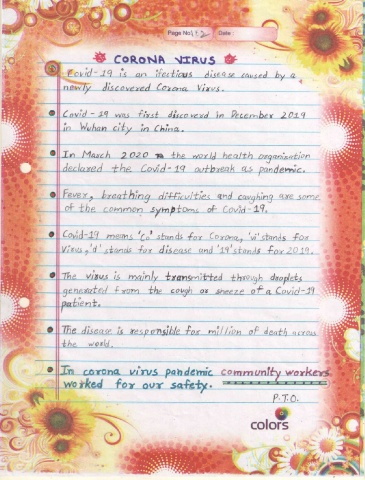 Page No. 112 Date :
CORONA VIRUS
Covid-19 is an ifectious disease caused by a
newly discovered Corona Virus.
Covid-19 was first discoverd in December 2019
in Wuhan city in China.
In March 2020 the world health organisation
declared the Covid-19 outbreak as pandemic.
Fever, breathing difficulties and coughing are some
of the common symptoms of Covid-19.
Covid-19 means 'Co' stands for Corona, 'vi' stands for
Virus, 'd' stands for disease and '19' stands for 2019.
The virus is mainly transmitted through droplets
generated from the cough or sneeze of a Covid-19
patient.
The disease is responsible for million of death across
the world.
In corona virus pandemic community workers
worked for our safety.
P.T.O.
colors